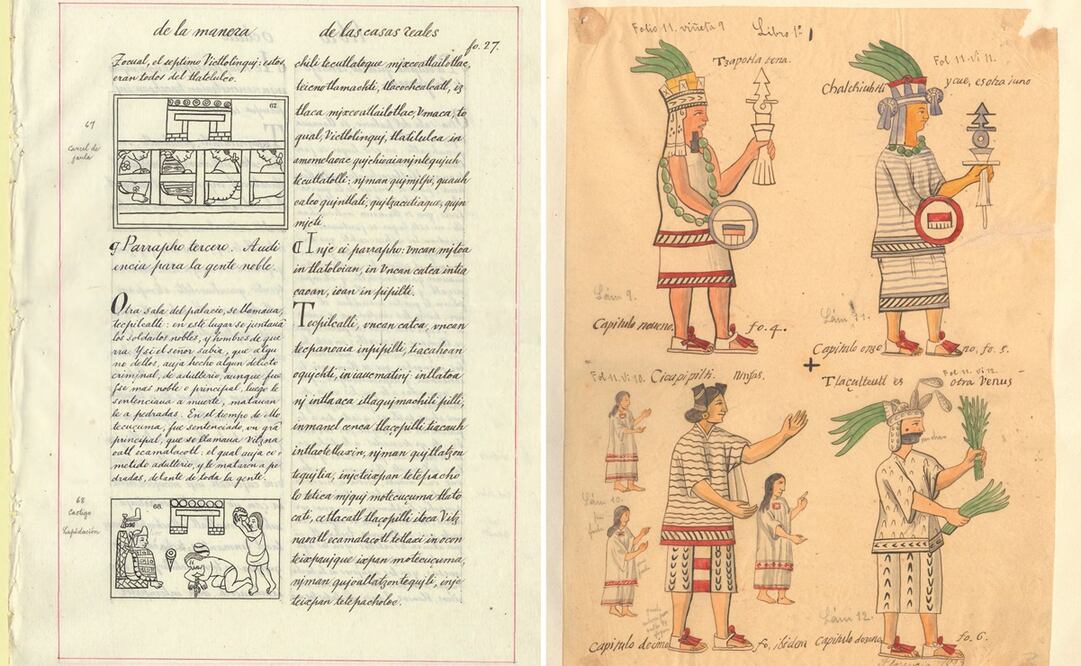 de la manera
de las casas reales
fo. 27.
Zocual, el septimo Victlolinquj: estos
eran todos del tlatelulco.
67
67
Carcel de
jaula
ꝗ Parrapho tercero. Audi
encia para la gente noble.
Otra sala del palacio, se llamaua,
tecpilcalli: en este lugar se juntauã
los soldados nobles, y hombres de gue
rra. Y si el señor sabia, que algu
no dellos, auja hecho algun delicto
criminal, de adulterio, aunque fue
se mas noble o principal, luego le
sentenciaua a muerte, matauan
le a pedradas. En el tiempo de Mo
tecuçuma, fue sentenciado, un grã
principal, que se llamaua Vitzna
oatl ecamalacotl: el qual auja co
metido adulterio, y le mataron a pe
dradas, delante de toda la gente.
68
68.
Castigo
Lapidación
chili tecutlatoque mjxcoatlailotlac,
teicnotlamachti, tlacochcalcatl, iz
tlaca mjxcoatlailotlac, Vmaca, to
qual, Victlolinquj, tlatilulca in
amomelaoac qujchioaianjntequjuh
tecutlatolli: njman qujmilpi, quauh
calco qujntlali, qujtzacutiaque, qujn
mjcti.
ꝗ Inje ei parrapho: vncan mjtoa
in tlatoloian, in vncan catca intla
caoan, ioan in pipilti.
Tecpilcalli, vncan catca, vncan
tecpanoaia inpipilti, tiacahoan
oqujchti, in iauc matinj intlatoa
nj intlaaca itlaqujmachili pilli,
inmanel cenca tlaçopilli, tiacauh
intlaotlaxin, njman qujtlatzon
tequjlia, injc teixpan tetepacho
lo tetica mjquj motecuçuma tlato
cati, ce tlacatl tlaçopilli itoca Vitz
naoatl ecamalacotl tetlaxi in ocon
teixpaujque ixpan motecuçuma,
njman qujoallatzontequjli, injc
teixpan tetepacholoc.
Folio 11. viñeta 9
Libro 1º
Tzapotla tena.
Fol 11. Vi 11.
Chalchiuhtli
ycue, es otra iuno
Lám 9.
Capitulo noueno,
fo. 4.
Lám 11.
Capitulo onse
no, fo. 5.
Fol. 11. vi 10.
Cicapipilti.
Ninfas.
Fol. 11. vi. 12.
Tlaçulteutl es
otra Venus
Lám 10.
Capitulo decimo
fo, ibidem
Lám 12.
Capitulo doseno
fo. 6.